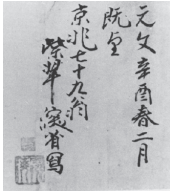 元文辛酉春二月
既望
京兆七十九翁
紫翠深省寫